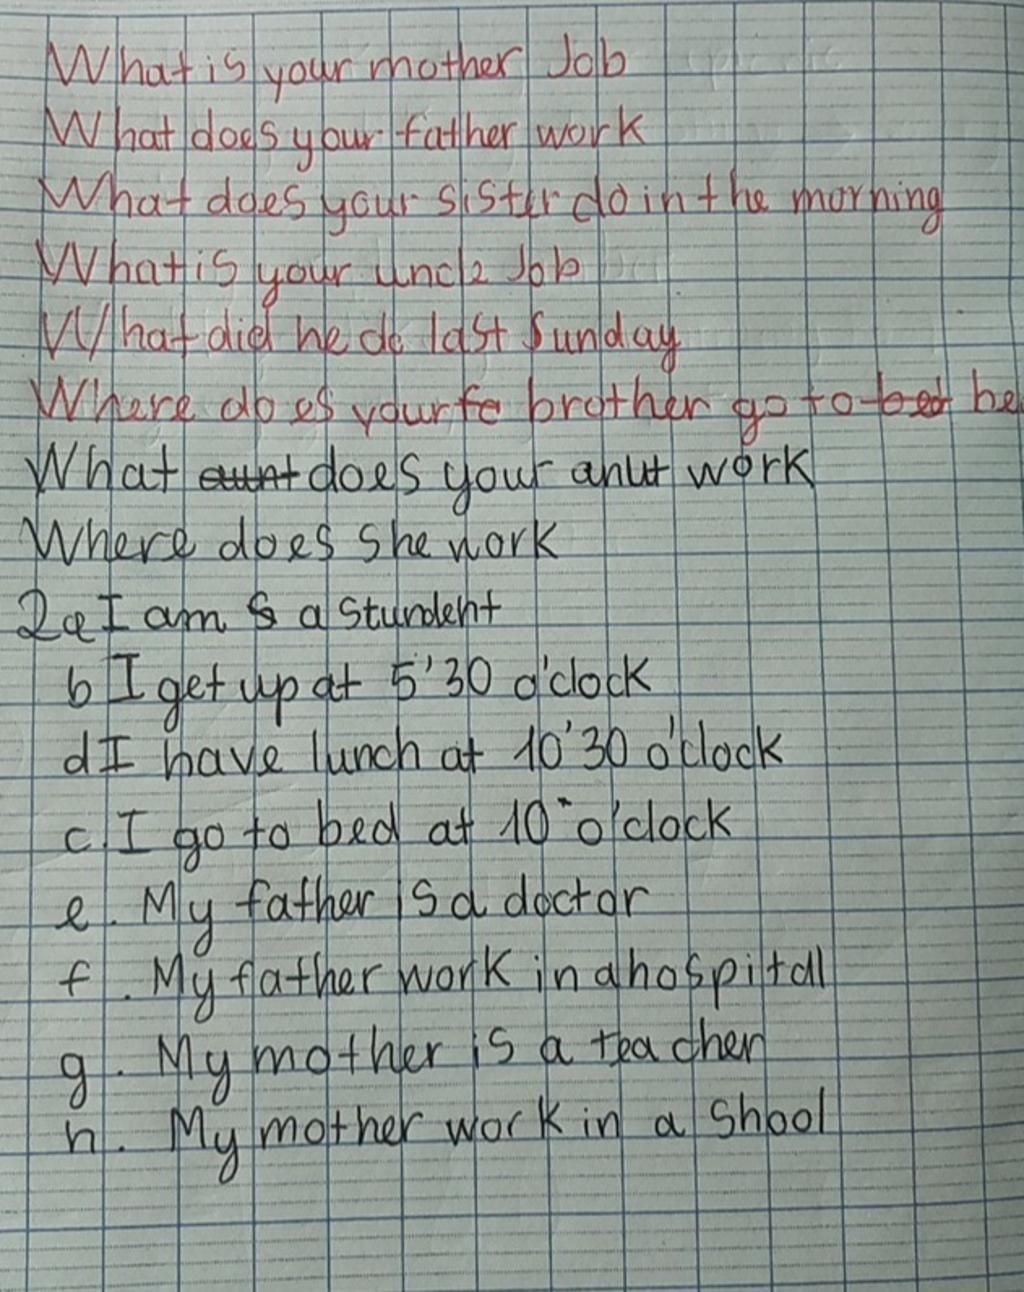 What is your mother Job
What does your father work
What does your sister do in the morning
What is your uncle Job
What did he do last Sunday
Where does your fe brother go to bed be
What aunt does your anut work
Where does she work
2a I am s a sturdent
b I get up at 5'30 o'clock
d I have lunch at 10'30 o'clock
c. I go to bed at 10 o'clock
e. My father is a doctor
f. My father work in a hospital
g. My mother is a teacher
h. My mother work in a Shool